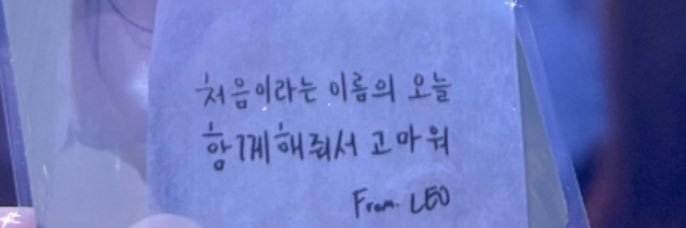 처음이라는 이름의 오늘
항께해줘서 고마워
From. LEO